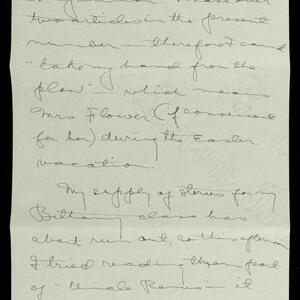 two articles in the present
number — therefore I can't
"take my hand from the
plow" — which means
Mrs Flower (if convenient
for her) during the Easter
vacation.
My supply of stories for my
Bethany class has
about run out, so this afternoon
I tried reading them part
of "Uncle Remus" — it